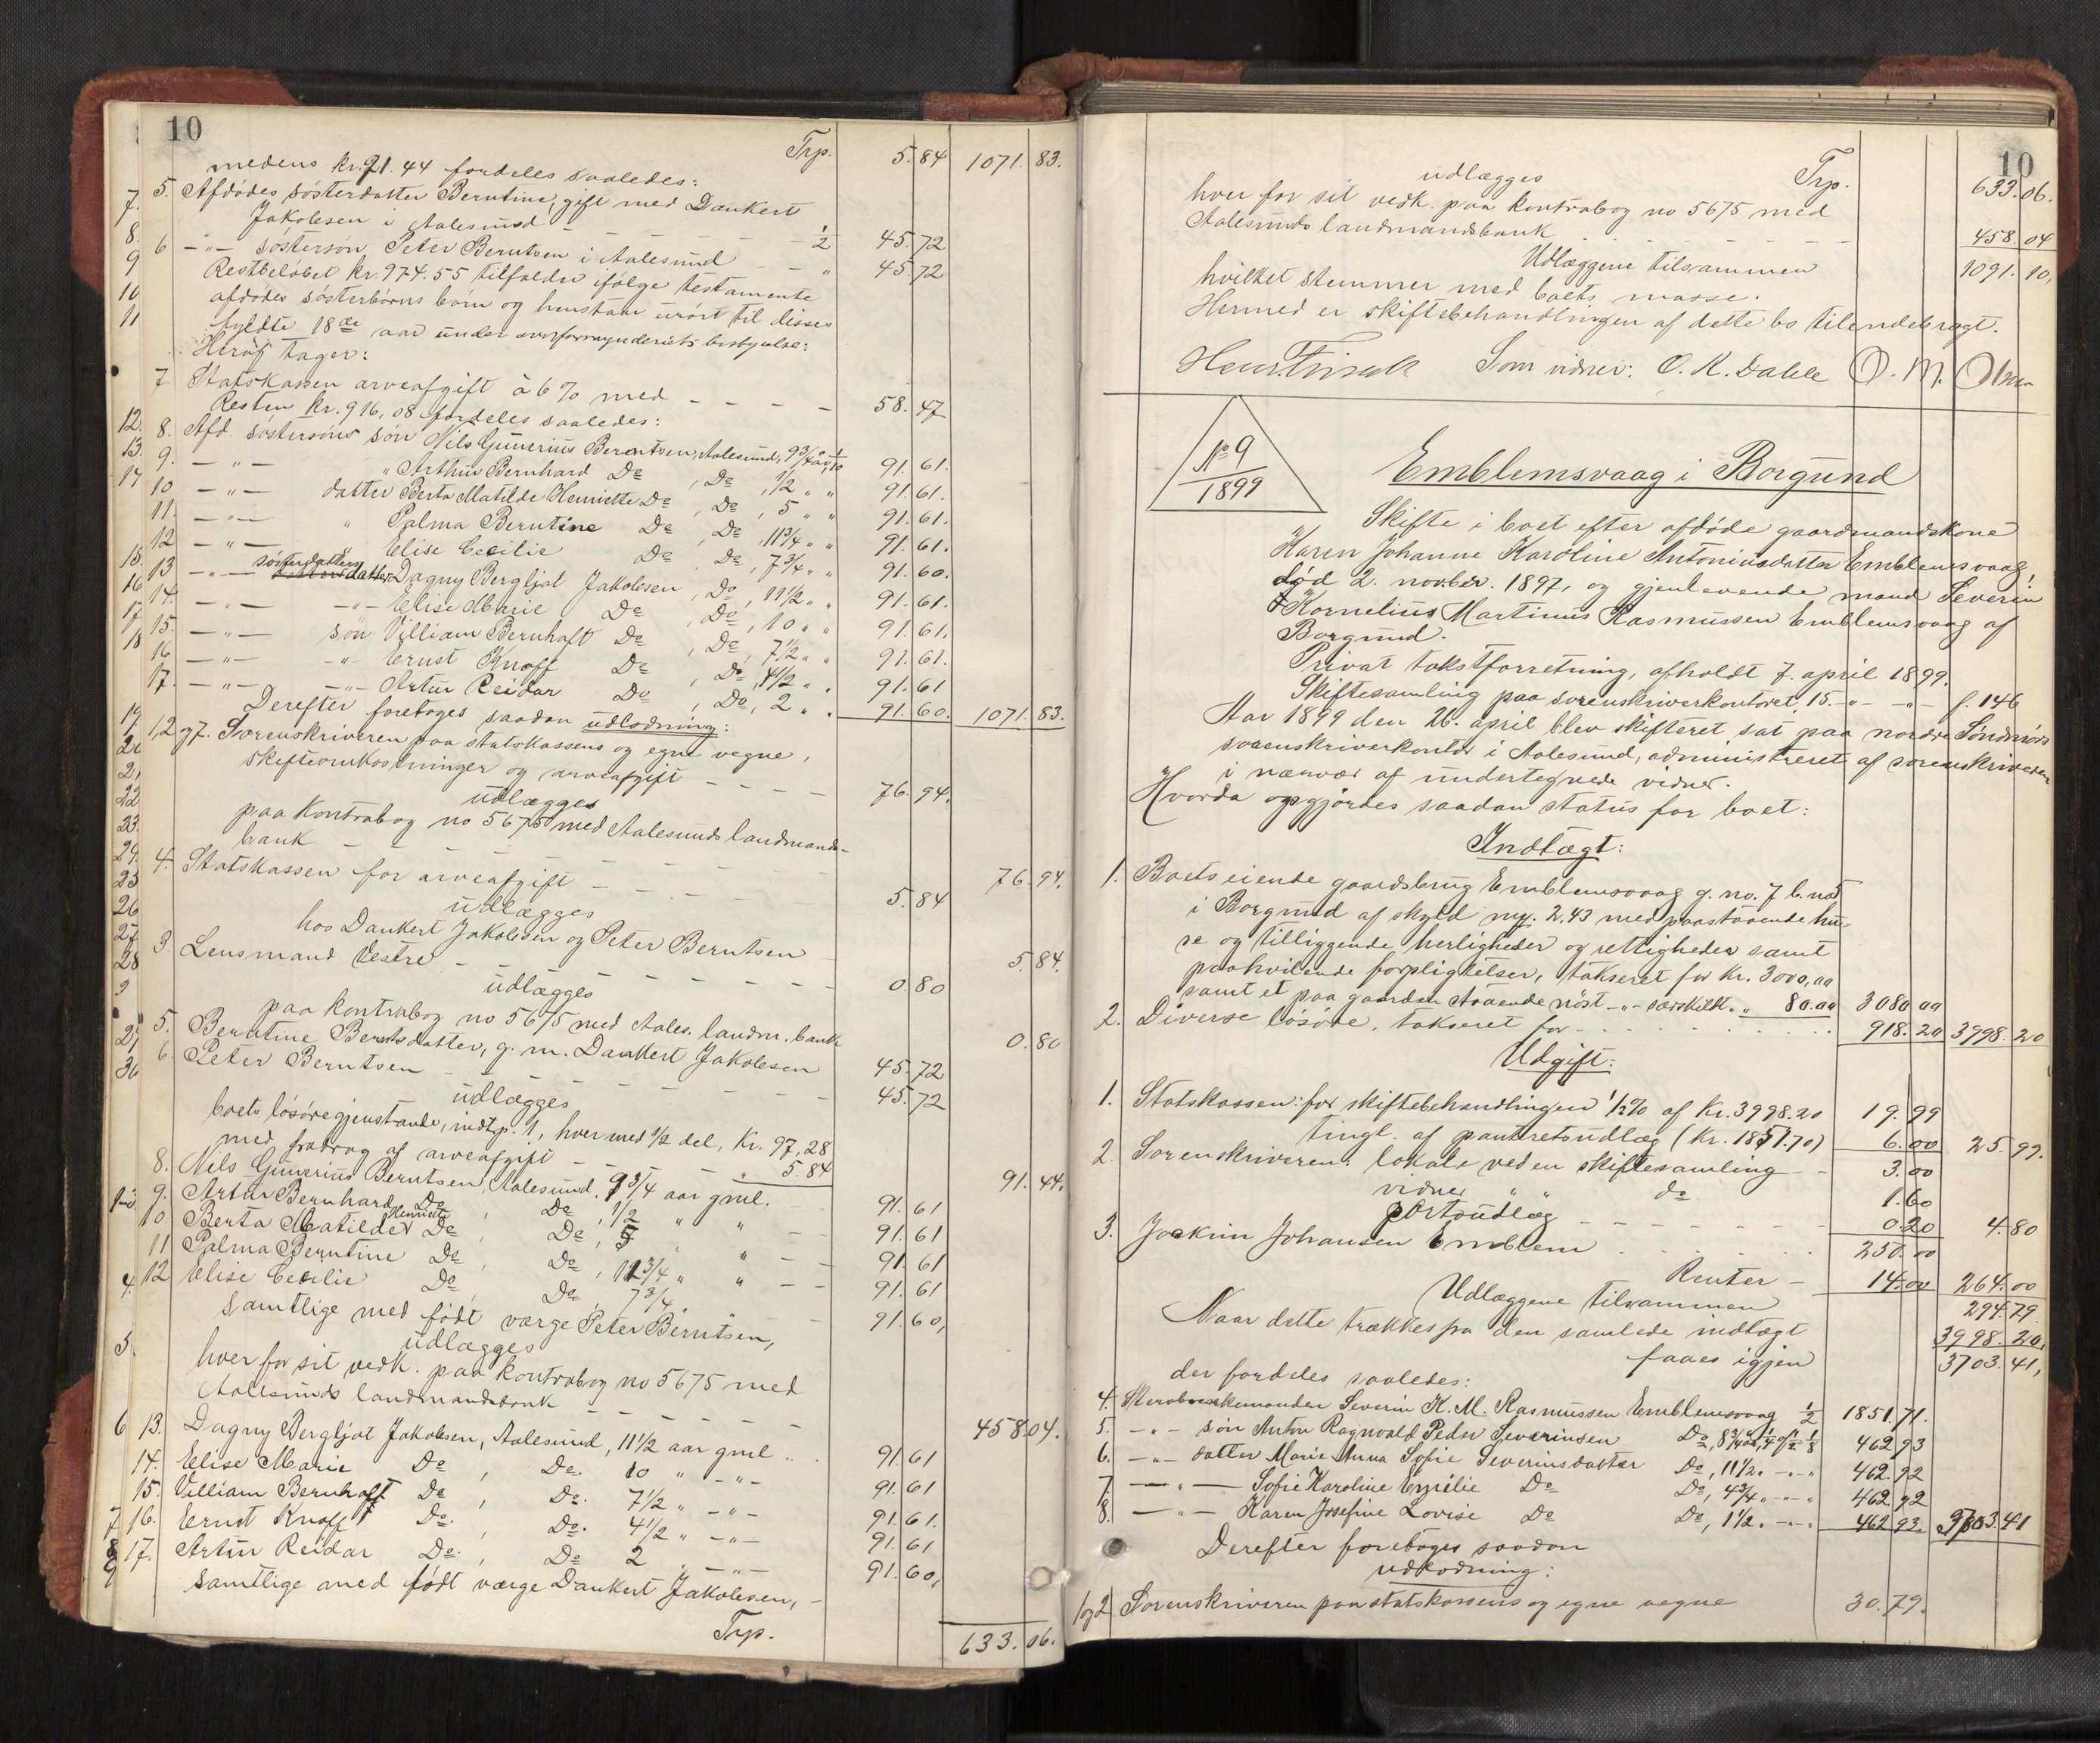 10
Trp. 5.84 1071.83.
medens kr. 91.44 fordeles saaledes:
5. Afdødes søsterdatter Berntine, gift med Dankert
Jakobsen i Aalesund - - - - - 1/2 45.72
6 -"- søstersøn Peter Berntsen i Aalesund - - " 45.72
Restbeløbet kr. 974.55 tilfalder ifølge testamente
afdødes søsterbørns børn og henstaar urørt til disses
fyldte 18de aar under overformynderiets bestyrelse:
Heraf tager:
7. Statskassen arveafgift à 6% med - - - - 58.47
Resten kr. 916,08 fordeles saaledes:
8. Afd. søstersøns søn Nils Gunerius Berntsen, Aalesund, 9 3/4 aar 1/10 91.61.
9. -"- " Arthur Bernhard Do , Do , 1/2 " " 91.61.
10 -"- datter Berta Matilde Henriette Do , Do , 5 " " 91.61.
11. -"- " Palma Berntine Do , Do , 11 3/4 " " 91.61.
12 -"- " Elise Cecilie Do , Do , 7 3/4 " " 91.60.
13 -"- søsterdatters datter Dagny Bergljot Jakobsen, Do , 11 1/2 " " 91.61.
14. -"- -"- Elise Marie Do , Do , 10 " " 91.61.
15. -"- søn Villiam Bernhoft Do , Do , 7 1/2 " " 91.61.
16 -"- -"- Ernst Knoff Do , Do , 4 1/2 " " 91.61
17. -"- -"- Artur Reidar Do , Do , 2 " " 91.60. 1071.83.
Derefter foretoges saadan udlodning:
1,2 og 7. Sorenskriveren paa statskassens og egne vegne,
skifteomkostninger og arveafgift - - - - 76.94.
udlægges
paa kontrabog no 5675 med Aalesunds landmands-
bank - - - - - 76.94.
4. Statskassen for arveafgift - - - - 5.84
udlægges
hos Dankert Jakobsen og Peter Berntsen - 5.84.
3 Lensmand Vestre - - - - - 0.80
udlægges
paa kontrabog no 5675 med Aales. landm. bank 0.80
5. Berntine Berntsdatter, g. m. Dankert Jakobsen 45.72
6. Peter Berntsen - - - - - 45.72
udlægges
boets løsøregjenstande, indtp. 1, hver med 1/2 del, Kr. 97,28
med fradrag af arveafgift - - - " 5.84 91.44.
8. Nils Gunerius Berntsen, Aalesund, 9 3/4 aar gml. 91.61
9. Artur Bernhard Do , Do , 1/2 " " 91.61
10 Berta Matilde Henriette Do , Do , 5 " " 91.61
11 Palma Berntine Do , Do , 11 3/4 " " 91.61
12 Elise Cecilie Do , Do , 7 3/4 " " 91.60,
samtlige med født værge Peter Berntsen,
udlægges
hver for sit vedk. paa kontrabog no 5675 med
Aalesunds landmandsbank - - - - - 458.04.
13. Dagny Bergljot Jakobsen, Aalesund, 11 1/2 aar gml . . 91.61
14. Elise Marie Do , Do. 10 " -"- 91.61
15. Villiam Bernhoft Do , Do. 7 1/2 " -"- 91.61.
16. Ernst Knoff Do. , Do. 4 1/2 " -"- 91.61
17. Artur Reidar Do. , Do 2 " -"- 91.60,
samtlige med født værge Dankert Jakobsen, -
Trp. 633.06.
10
Trp. 633.06.
udlægges
hver for sit vedk. paa kontrabog no 5675 med
Aalesunds landmandsbank - - - - - 458.04
Udlæggene tilsammen 1091.10,
hvilket stemmer med boets masse.
Hermed er skiftebehandlingen af dette bo tilendebragt.
Som vidner: O. K. Dahle O. M.
No 9
1899
Emblemsvaag i Borgund
Skifte i boet efter afdøde gaardmandskone
Karen Johanne Karoline Antoniusdatter Emblemsvaag,
død 2. novber. 1897, og gjenlevende mand Severin
Kornelius Martinus Rasmussen Emblemsvaag af
Borgund.
Privat takstforretning, afholdt 7. april 1899.
Skiftesamling paa sorenskriverkontoret, 15. -"- -"- f. 146
Aar 1899 den 26. april blev skifteret sat paa nordre Søndmørs
sorenskriverkontor i Aalesund, administreret af sorenskriveren
i nærvær af undertegnede vidner.
Hvorda opgjørdes saadan status for boet:
Indtægt:
1. Boets eiende gaardsbrug Emblemsvaag g. no. 7 b. no 5
i Borgund af skyld my. 2.43 med paastaaende hu-
se og tilliggende herligheder og rettigheder samt
paahvilende forpligtelser, takseret for Kr. 3000,00
samt et paa gaarden staaende nøst -"- særskildt. " 80.00 3080 00
2. Diverse løsøre, takseret for - - - - - 918.20 3998.20
Udgift:
1. Statskassen: for skiftebehandlingen 1/2% af Kr. 3998.20 19.99
tingl. af panteretsudlæg (Kr. 1851.70) 6.00 25.99.
2. Sorenskriveren: lokale ved en skiftesamling - - 3.00
vidner " " do 1.60
portoudlæg - - - - - 0.20 4.80
3. Joakim Johansen Emblem . . . . . 250.00
Renter - 14.00 264.00
Udlæggene tilsammen 294.79.
Naar dette trækkes fra den samlede indtægt 3998.20,
faaes igjen 3703.41,
der fordeles saaledes:
4. Severin K. M. Rasmussen Emblemsvaag 1/2 1851.71.
5. -"- søn Anton Ragnvald Peder Severinsen Do, 8 3/4 aar, 1/4 of 1/2 1/8 462.93
6. -"- datter Marie Anna Sofie Severinsdatter Do, 11 1/2 " -"- " 462.92
7. -"- Sofie Karoline Emilie Do Do, 4 3/4 " -"- " 462.92
8. -"- Karen Josefine Lovise Do Do, 1 1/2 " -"- " 462.93. 3703.41
Derefter foretoges saadan
udlodning:
1 og 2 Sorenskriveren paa statskassens og egne vegne 30.79.